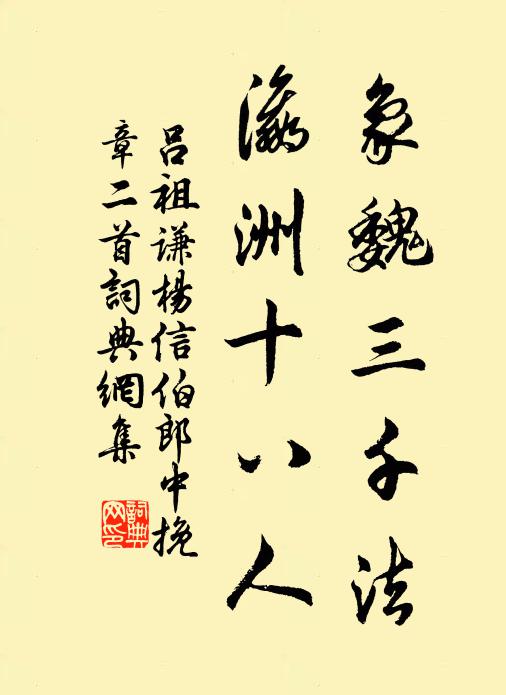 象魏三千法
瀛洲十八人
吕祖谦杨信伯郎中挽
章二首詞典網集
詞典
网印